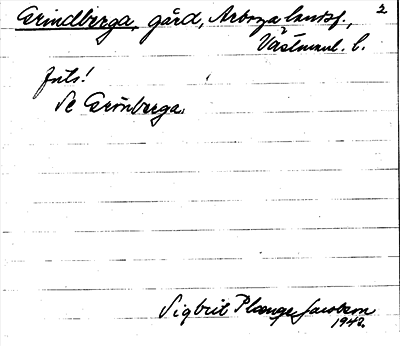 Grindberga, gård, Arboga landsf., 2
Västmanl. l.
Juls!
Se Grönberga.
Sigbrit Plænge Jacobson
1942.